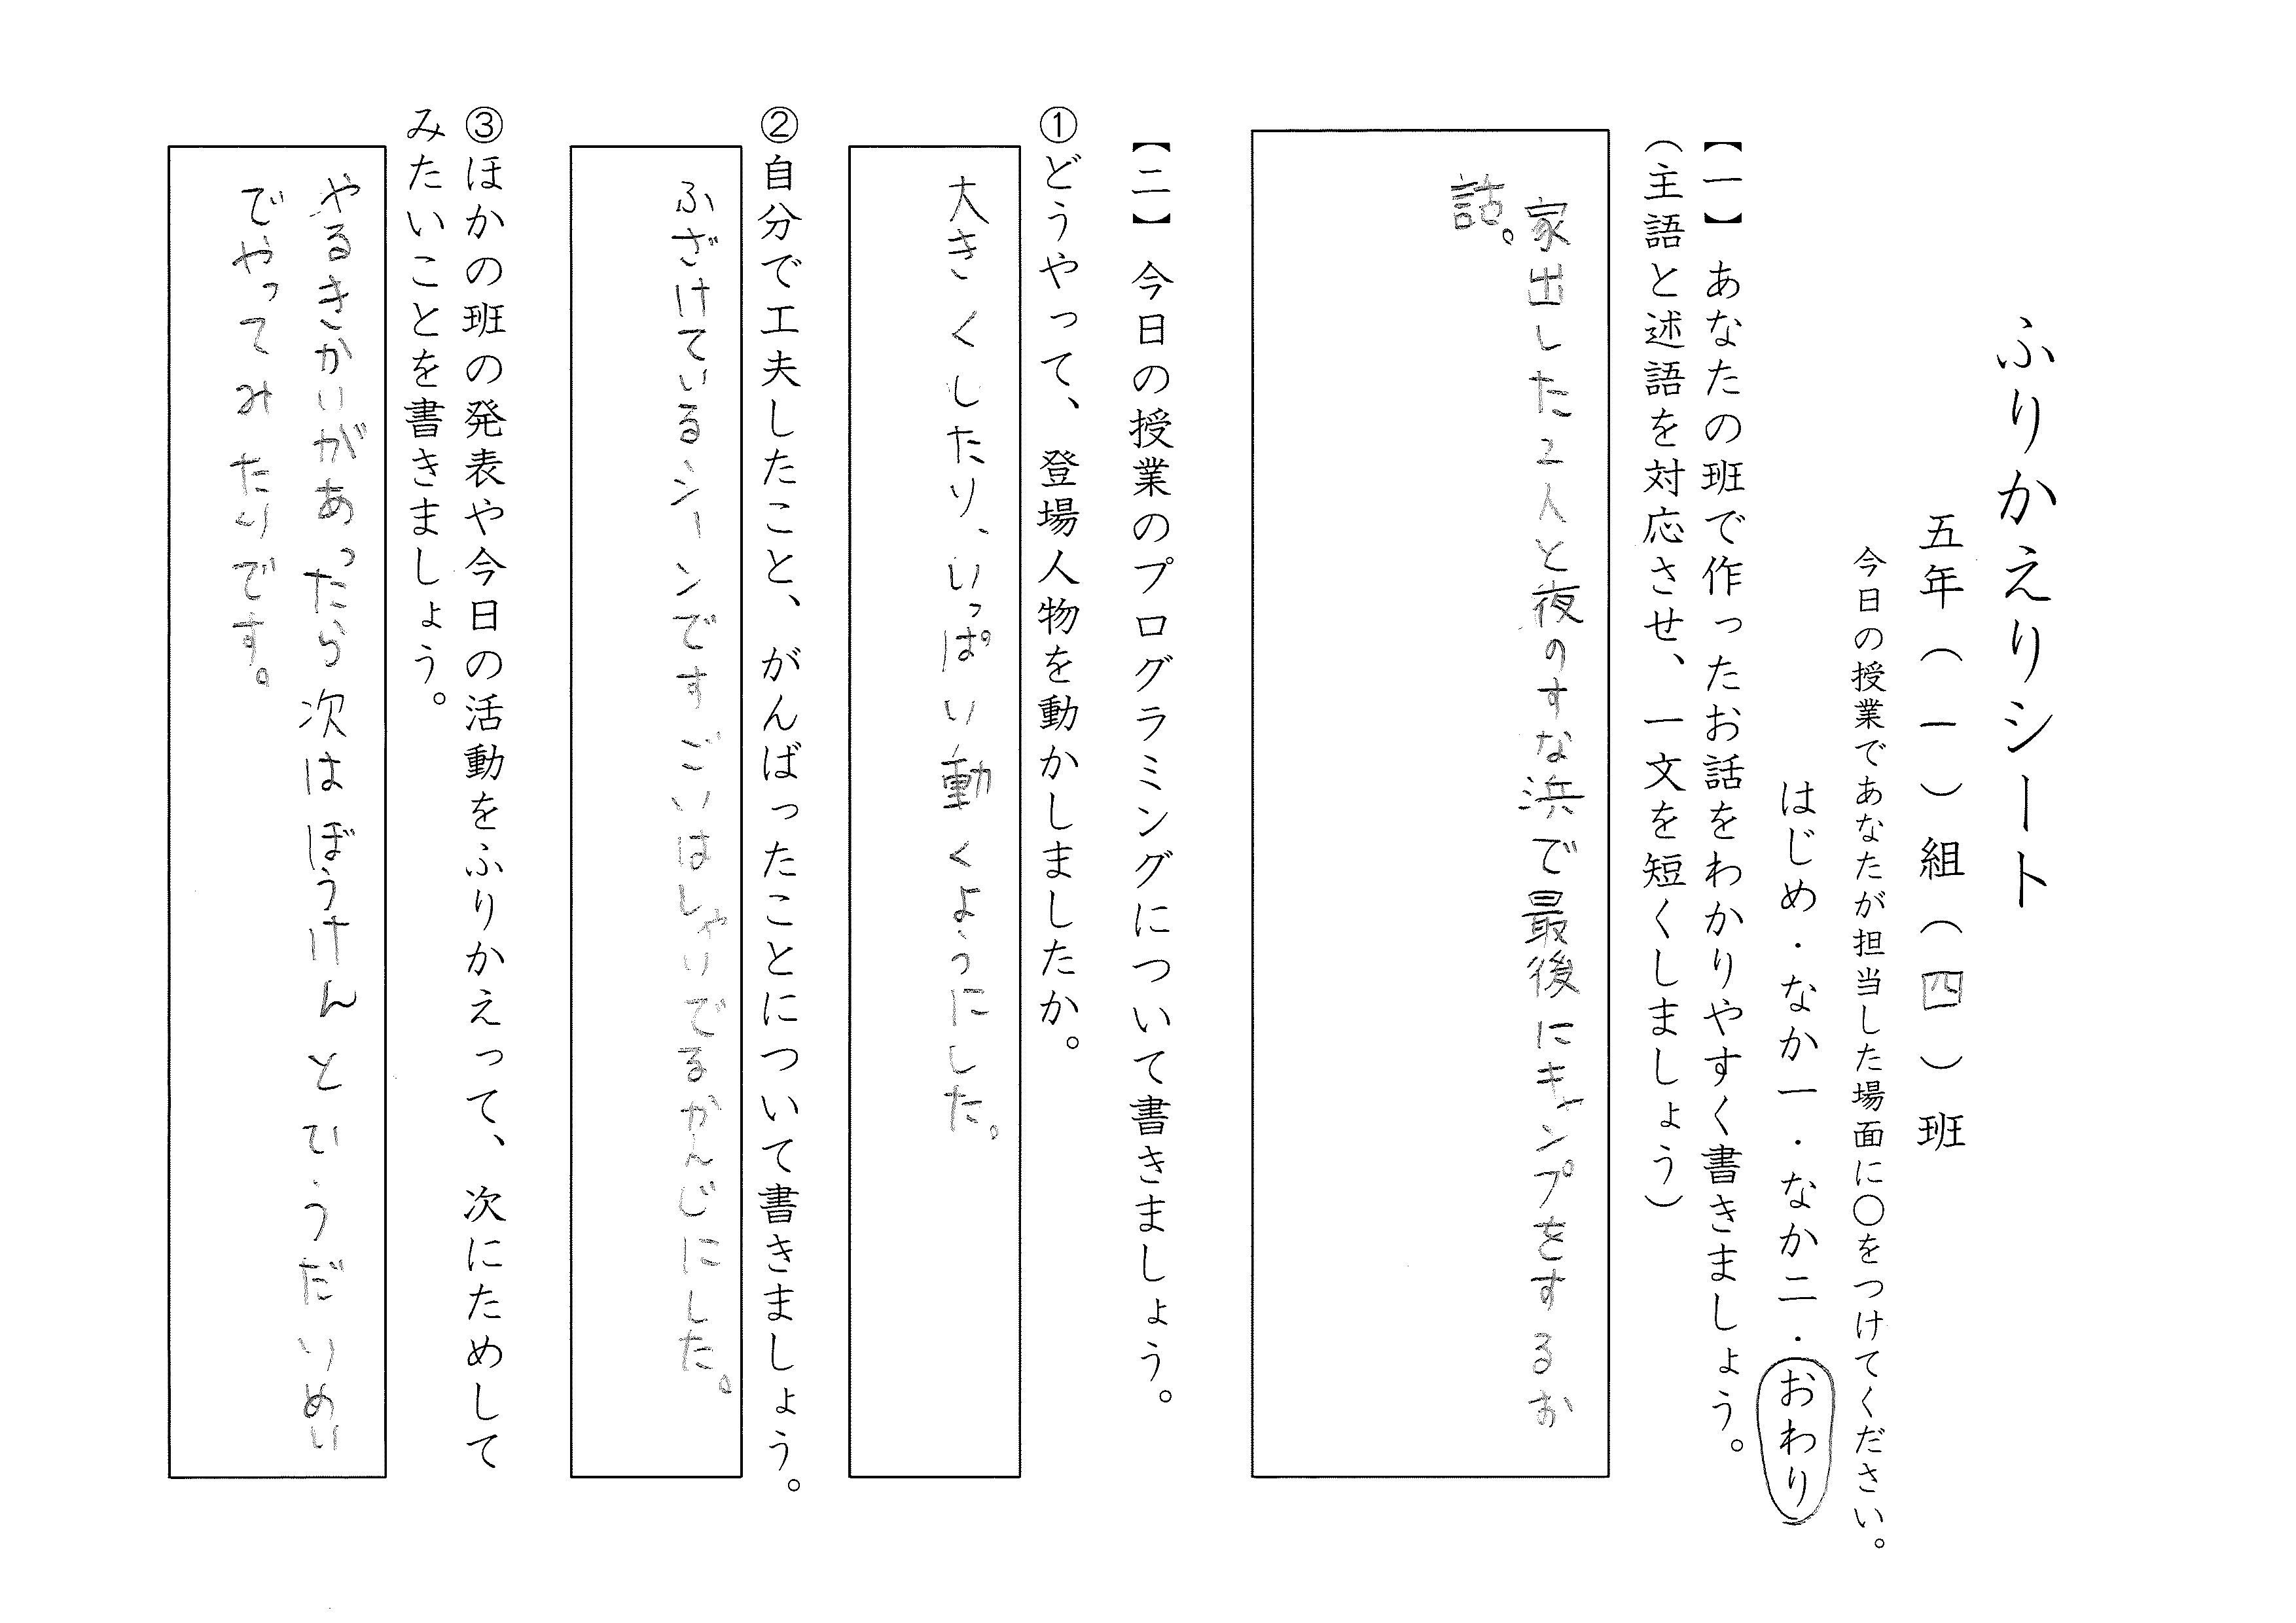 ふりかえりシート
五年（一）組（四）班
今日の授業であなたが担当した場面に〇をつけてください。
はじめ・なか一・なか二・おわり
【一】あなたの班で作ったお話をわかりやすく書きましょう。
（主語と述語を対応させ、一文を短くしましょう）
家出した2人と夜のすな浜で最後にキャンプをするお
話。
【二】今日の授業のプログラミングについて書きましょう。
①どうやって、登場人物を動かしましたか。
大きくしたり、いっぱい動くようにした。
②自分で工夫したこと、がんばったことについて書きましょう。
ふざけているシーンですごいはしゃりでるかんじにした。
③ほかの班の発表や今日の活動をふりかえって、次にためして
みたいことを書きましょう。
やるきかいがあったら次はぼうけんとていうだいめい
でやってみたりです。